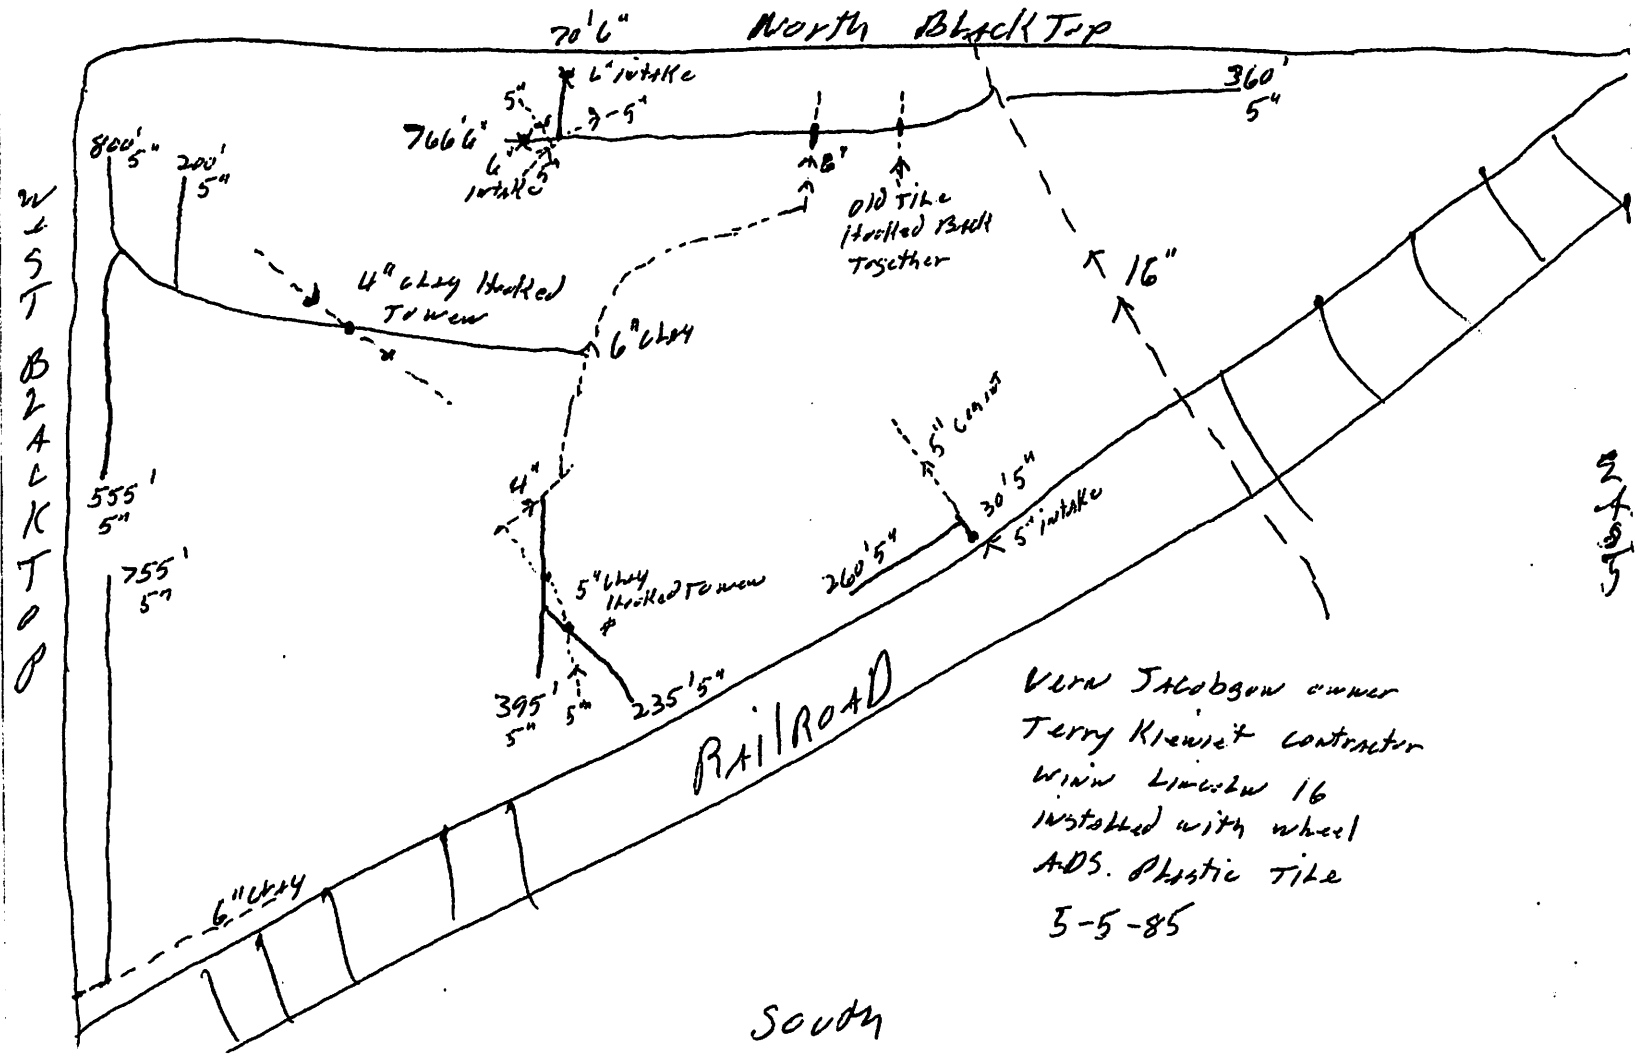 North BlackTop
70'6"
6" intake
5"
5"
766'6"
6"
intake
5"
360'
5"
800'
5"
200'
5"
WEST BLACKTOP
8"
Old Tile
Hooked Back
Together
4" clay Hooked
To new
16"
6" clay
5" cement
4"
30'5"
5" intake
260'5"
555'
5"
755'
5"
5" clay
Hooked To new
395'
5"
5"
235'5"
RAilROAD
Vern Jacobson owner
Terry Kiewiet contractor
Winn Lincoln 16
installed with wheel
ADS. Plastic Tile
5-5-85
6" clay
South